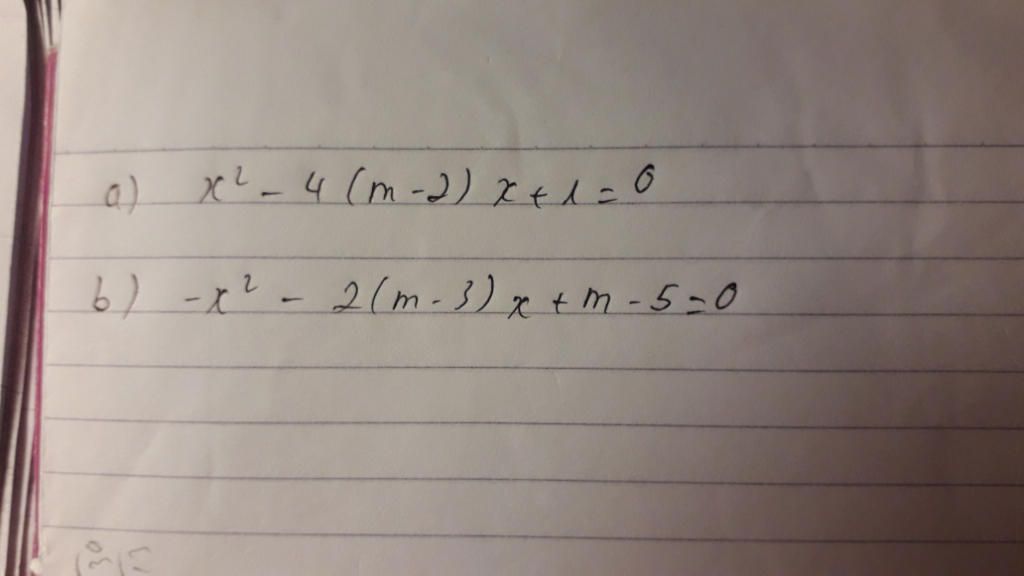 a) x² - 4 (m - 2) x + 1 = 0
b) -x² - 2(m - 3) x + m - 5 = 0